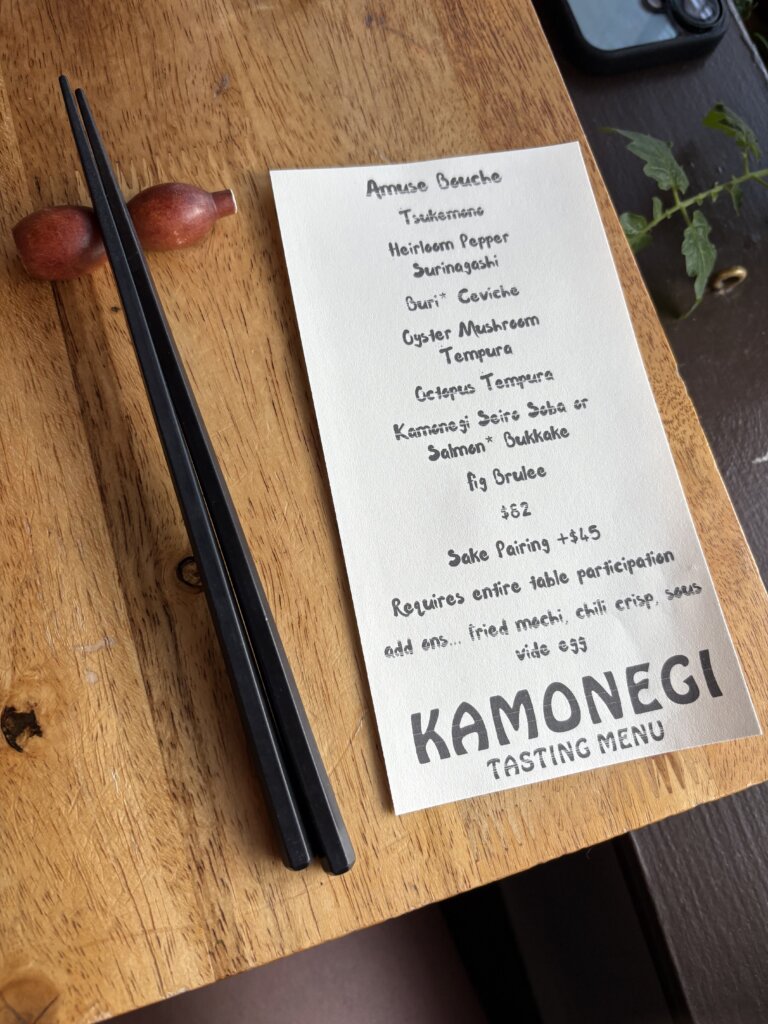 Amuse Bouche
Tsukemono
Heirloom Pepper
Surinagashi
Buri* Ceviche
Oyster Mushroom
Tempura
Octopus Tempura
Kamonegi Seiro Soba or
Salmon* Bukkake
fig Brulee
$62
Sake Pairing +$45
Requires entire table participation
add ons... fried mochi, chili crisp, sous
vide egg
KAMONEGI
TASTING MENU